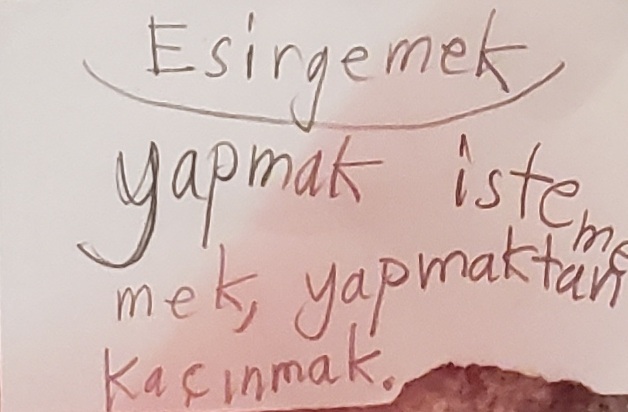 Esirgemek
yapmak isteme
mek, yapmaktan
kaçınmak.